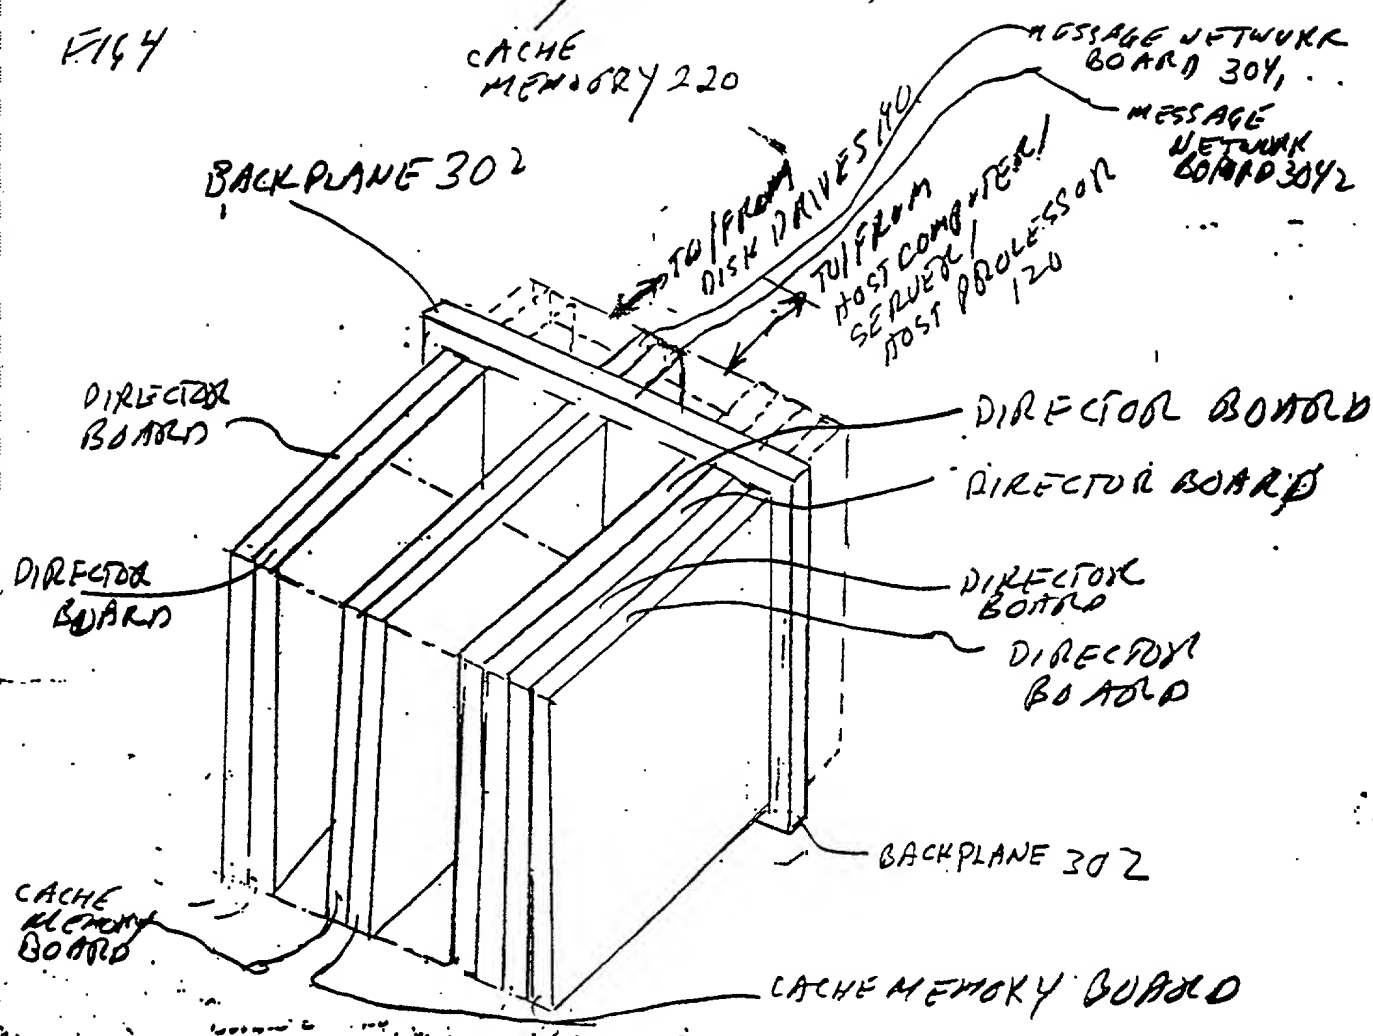 FIG 4
CACHE
MEMORY 220
MESSAGE NETWORK
BOARD 304₁
MESSAGE
NETWORK
BOARD 304₂
BACKPLANE 302
TO/FROM
DISK DRIVES 140
TO/FROM
HOST COMPUTER/
SERVER/
HOST PROCESSOR
120
DIRECTOR
BOARD
DIRECTOR BOARD
DIRECTOR BOARD
DIRECTOR
BOARD
DIRECTOR
BOARD
DIRECTOR
BOARD
BACKPLANE 302
CACHE
MEMORY
BOARD
CACHE MEMORY BOARD